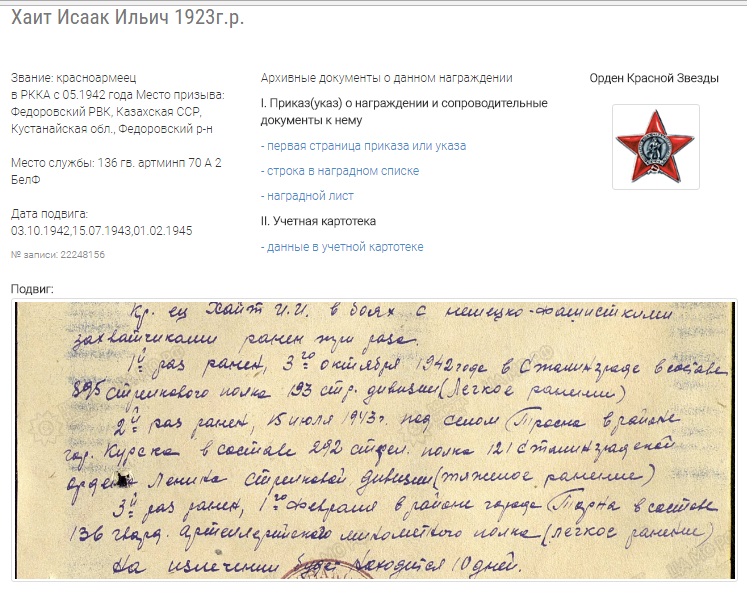 Хаит Исаак Ильич 1923г.р.
Звание: красноармеец
в РККА с 05.1942 года Место призыва:
Федоровский РВК, Казахская ССР,
Кустанайская обл., Федоровский р-н
Место службы: 136 гв. артминп 70 А 2
БелФ
Дата подвига:
03.10.1942,15.07.1943,01.02.1945
№ записи: 22248156
Архивные документы о данном награждении
I. Приказ(указ) о награждении и сопроводительные
документы к нему
- первая страница приказа или указа
- строка в наградном списке
- наградной лист
II. Учетная картотека
- данные в учетной картотеке
Орден Красной Звезды
Подвиг:
Кр-ец Хайт И.И. в боях с немецко-фашисткими
захватчиками ранен три раза.
1й раз ранен, 3го октября 1942 года в Сталинграде в составе
895 стрелкового полка 193 стр. дивизии (Легкое ранение)
2й раз ранен, 15 июля 1943г. под селом Тросна в районе
гор. Курска в составе 292 стрел. полка 121 Сталинградской
ордена Ленина стрелковой дивизии (тяжелое ранение)
3й раз ранен, 1го февраля в районе города Торна в составе
136 гвард. артиллерийского минометного полка (легкое ранение)
На излечении будет находится 10 дней.